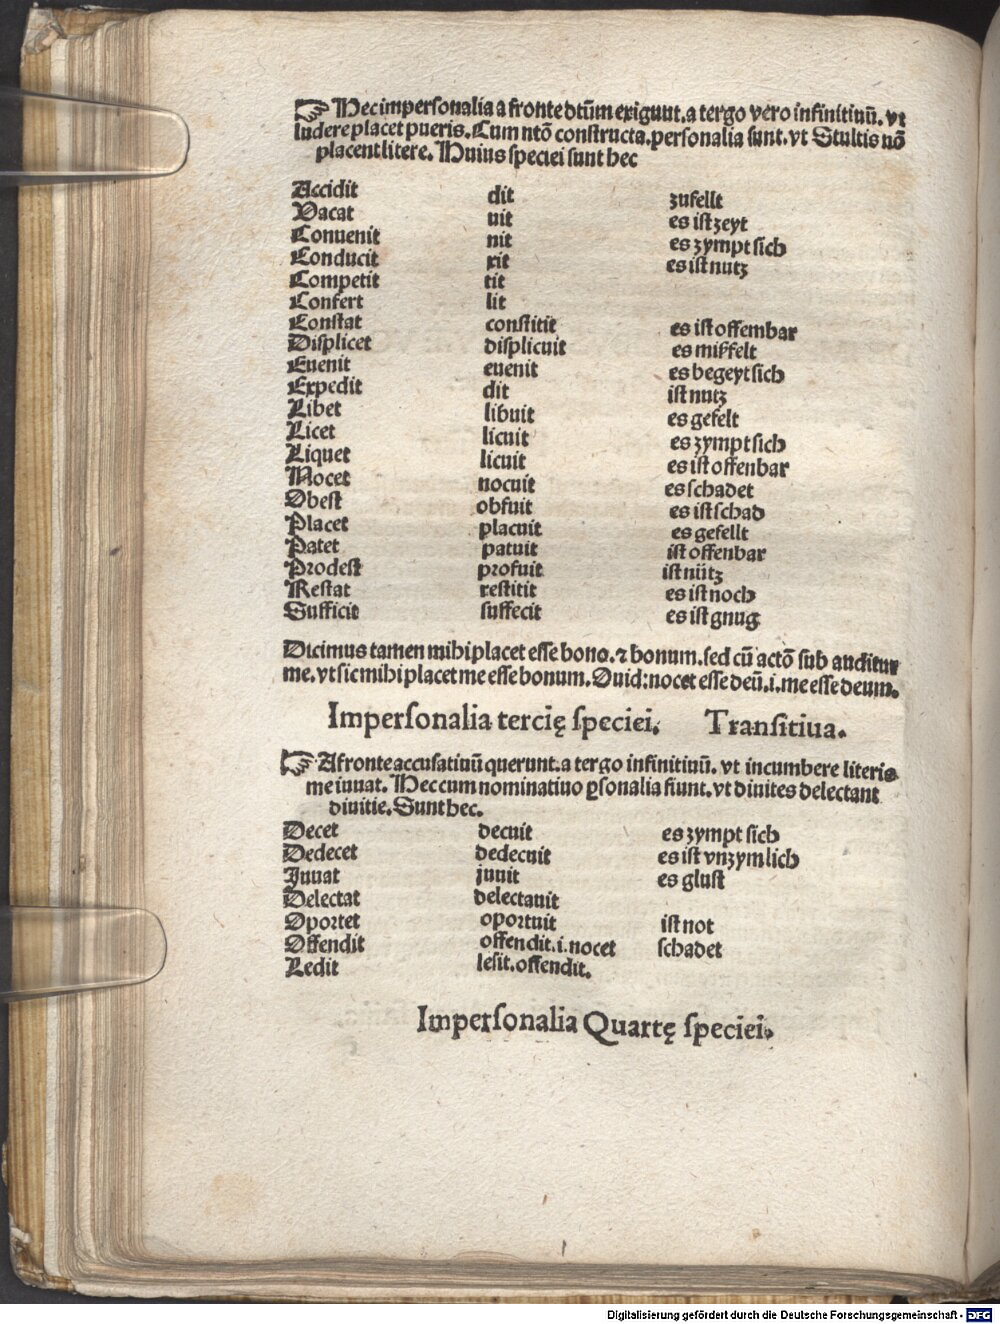 ☞ Hec impersonalia a fronte dtũm exigunt. a tergo vero infinitiuũ. vt
ludere placet pueris. Cum ntõ constructa. personalia sunt. vt Stultis nõ
placent litere. Huius speciei sunt hec
Accidit dit zufellt
Vacat uit es ist zeyt
Conuenit nit es zympt sich
Conducit xit es ist nutz
Competit tit
Confert lit
Constat constitit es ist offembar
Displicet displicuit es mißfelt
Euenit euenit es begeyt sich
Expedit dit ist nutz
Libet libuit es gefelt
Licet licuit es zympt sich
Liquet licuit es ist offenbar
Nocet nocuit es schadet
Obest obfuit es ist schad
Placet placuit es gefellt
Patet patuit ist offenbar
Prodest profuit ist nütz
Restat restitit es ist noch
Sufficit suffecit es ist gnug
Dicimus tamen mihi placet esse bono. ⁊ bonum. sed cũ actõ sub auditur
me. vt sic mihi placet me esse bonum. Ouid: nocet esse deũ. i. me esse deum.
Impersonalia tercię speciei. Transitiua.
☞ A fronte accusatiuũ querunt. a tergo infinitiuũ. vt incumbere literis
me iuuat. Hec cum nominatiuo ꝑsonalia fiunt. vt diuites delectant
diuitie. Sunt hec.
Decet decuit es zympt sich
Dedecet dedecuit es ist vnzymlich
Iuuat juuit es glust
Delectat delectauit
Oportet oportuit ist not
Offendit offendit. i. nocet schadet
Ledit lesit. offendit.
Impersonalia Quartę speciei.
Digitalisierung gefördert durch die Deutsche Forschungsgemeinschaft - DFG